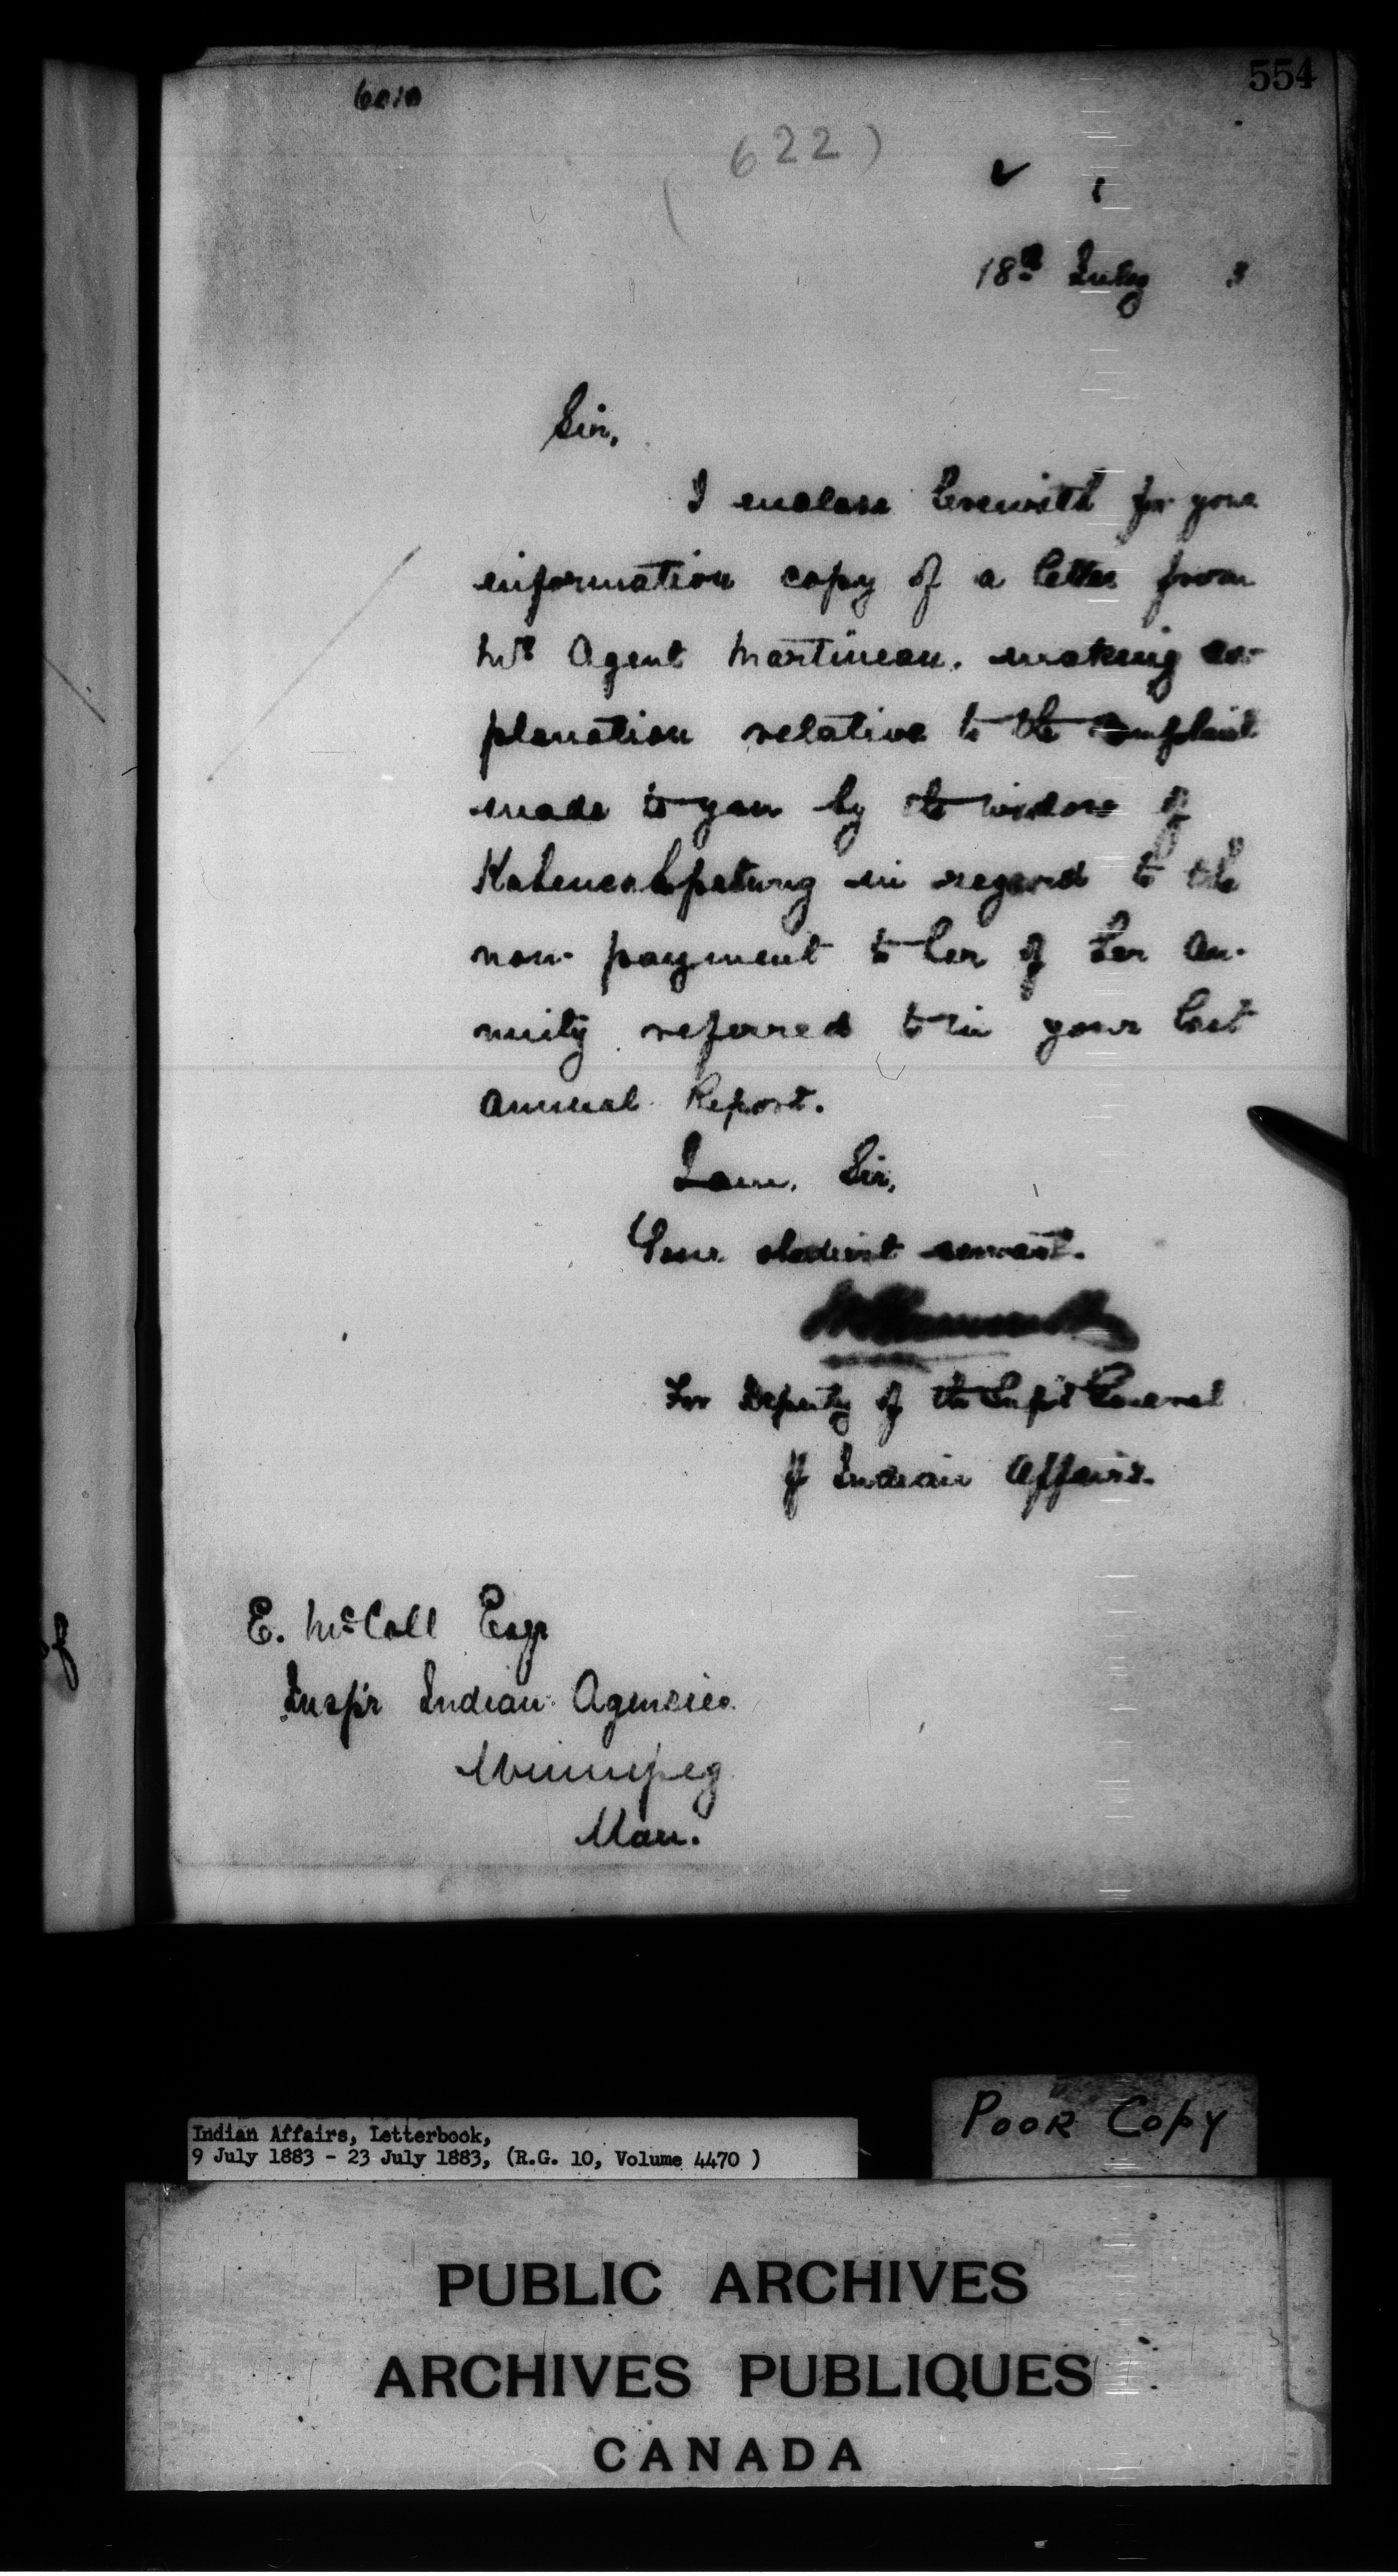 554
(622)
18th July 3
Sir,
I enclose herewith for your
information copy of a letter from
Mr Agent Martineau, making ex-
planation relative to the complaint
made to you by the widow of
in regard to the
non-payment to her of her an-
nuity referred to in your last
annual Report.
I am, Sir,
Your obedient servant.
For Deputy of the Supt General
of Indian Affairs.
E. McColl Esqr
Insp'r Indian Agencies
Winnipeg
Man.
POOR COPY
Indian Affairs, Letterbook,
9 July 1883 - 23 July 1883, (R.G. 10, Volume 4470 )
PUBLIC ARCHIVES
ARCHIVES PUBLIQUES
CANADA